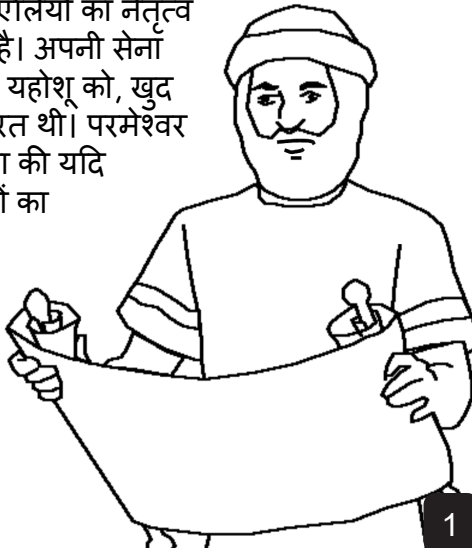 का नेतृत्व
है। अपनी सेना
यहोशू को, खुद
थी। परमेश्वर
की यदि
का
1